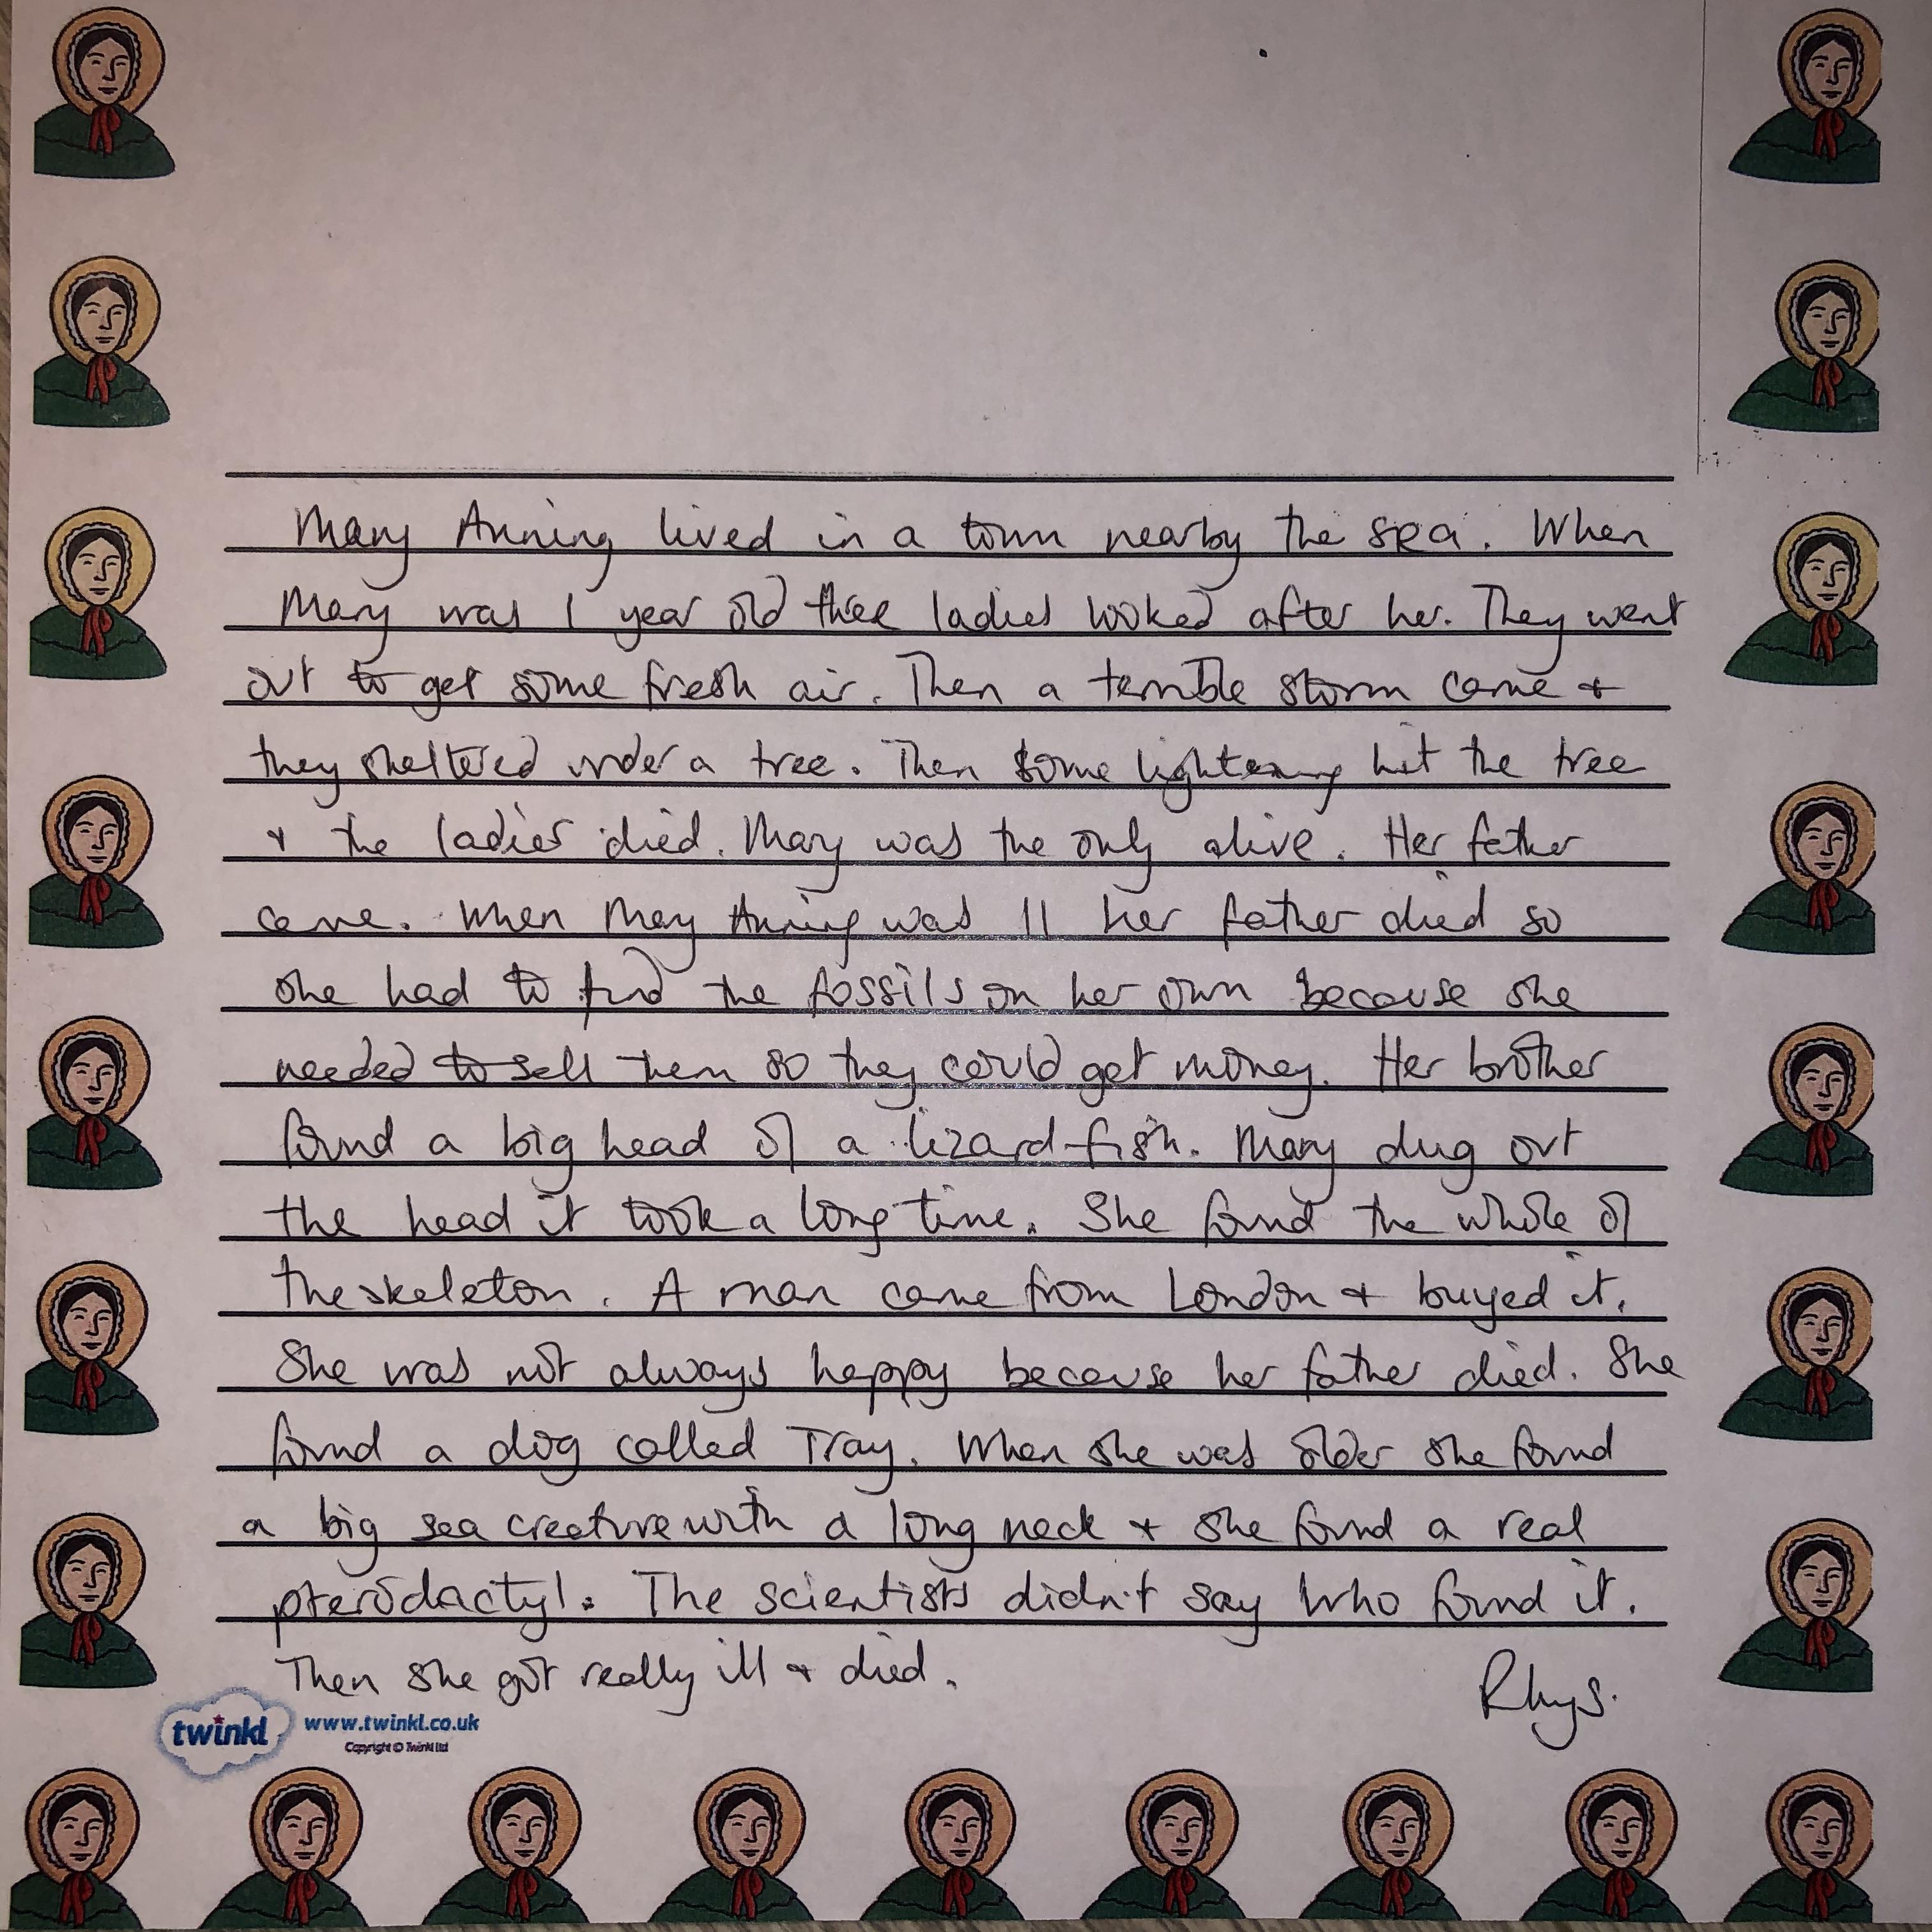 Mary Anning lived in a town nearby the sea. When
Mary was 1 year old three ladies looked after her. They went
out to get some fresh air. Then a terrible storm came +
they sheltered under a tree. Then some lightening hit the tree
+ the ladies died. Mary was the only alive. Her father
came. When Mary Anning was 11 her father died so
she had to find the fossils on her own because she
needed to sell them so they could get money. Her brother
found a big head of a lizard-fish. Mary dug out
the head it took a long time. She found the whole of
the skeleton. A man came from London + buyed it.
She was not always happy because her father died. She
found a dog called Tray. When she was older she found
a big sea creature with a long neck + she found a real
pterodactyl. The scientists didn't say who found it.
Then she got really ill + died.
Rhys.
twinkl www.twinkl.co.uk
Copyright © Twinkl Ltd